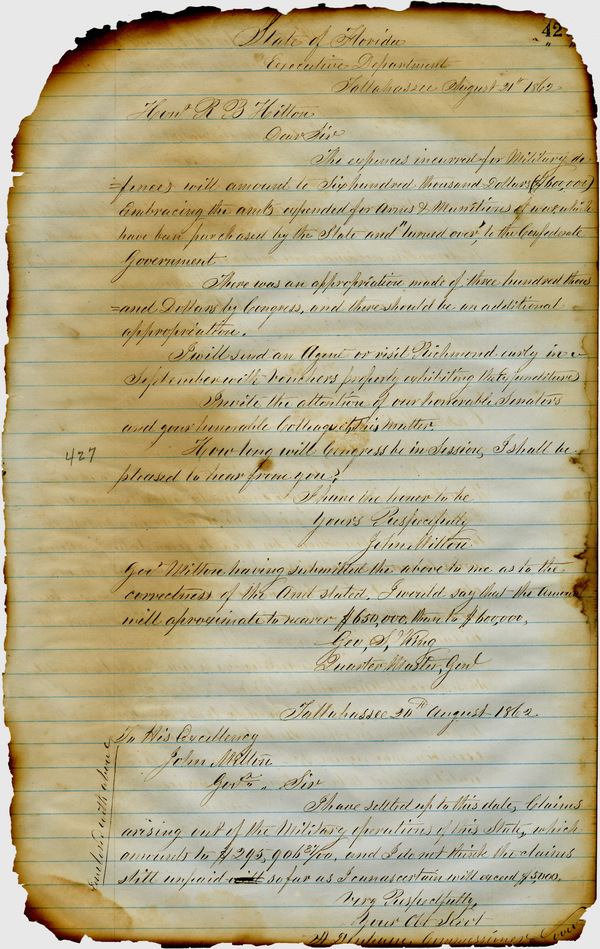 42
State of Florida
Executive Department
Tallahassee August 21st 1862
Honl R B Hilton
Dear Sir
The expenses incurred for Military de
=fences will amount to Six hundred thousand Dollars ($600,000)
Embracing the amts expended for Arms & Munitions of war, which
have been purchased by the State and "turned over," to the Confederate
Government
There was an appropriation made of three hundred thous
=and Dollars by Congress, and there should be an additional
appropriation.
I will send an Agent or visit Richmond early in
September with Vouchers properly exhibiting the Expenditures
Invite the attention of our honorable Senators
and your honorable Colleague to this matter
How long will Congress be in Session, I shall be
427
pleased to hear from you?
I have the honor to be
Yours Respectfully
John Milton
Govr Milton having submitted the above to me as to the
correctness of the Amt stated, I would say that the amount
will aproximate to nearer $650,000, than to $600,000,
Geo, S, King
Quarter Master, Genl
Tallahassee 20th August 1862
To His Excellency
John Milton
Govr Sir
I have settled up to this date, Claims
arising out of the Military operations of this State, which
amounts to $295,908 and I do not think the claims
still unpaid so far as I can ascertain will exceed $5000.
Very Respectfully,
Your Obt Servt
Commissioner
Enclosed with above